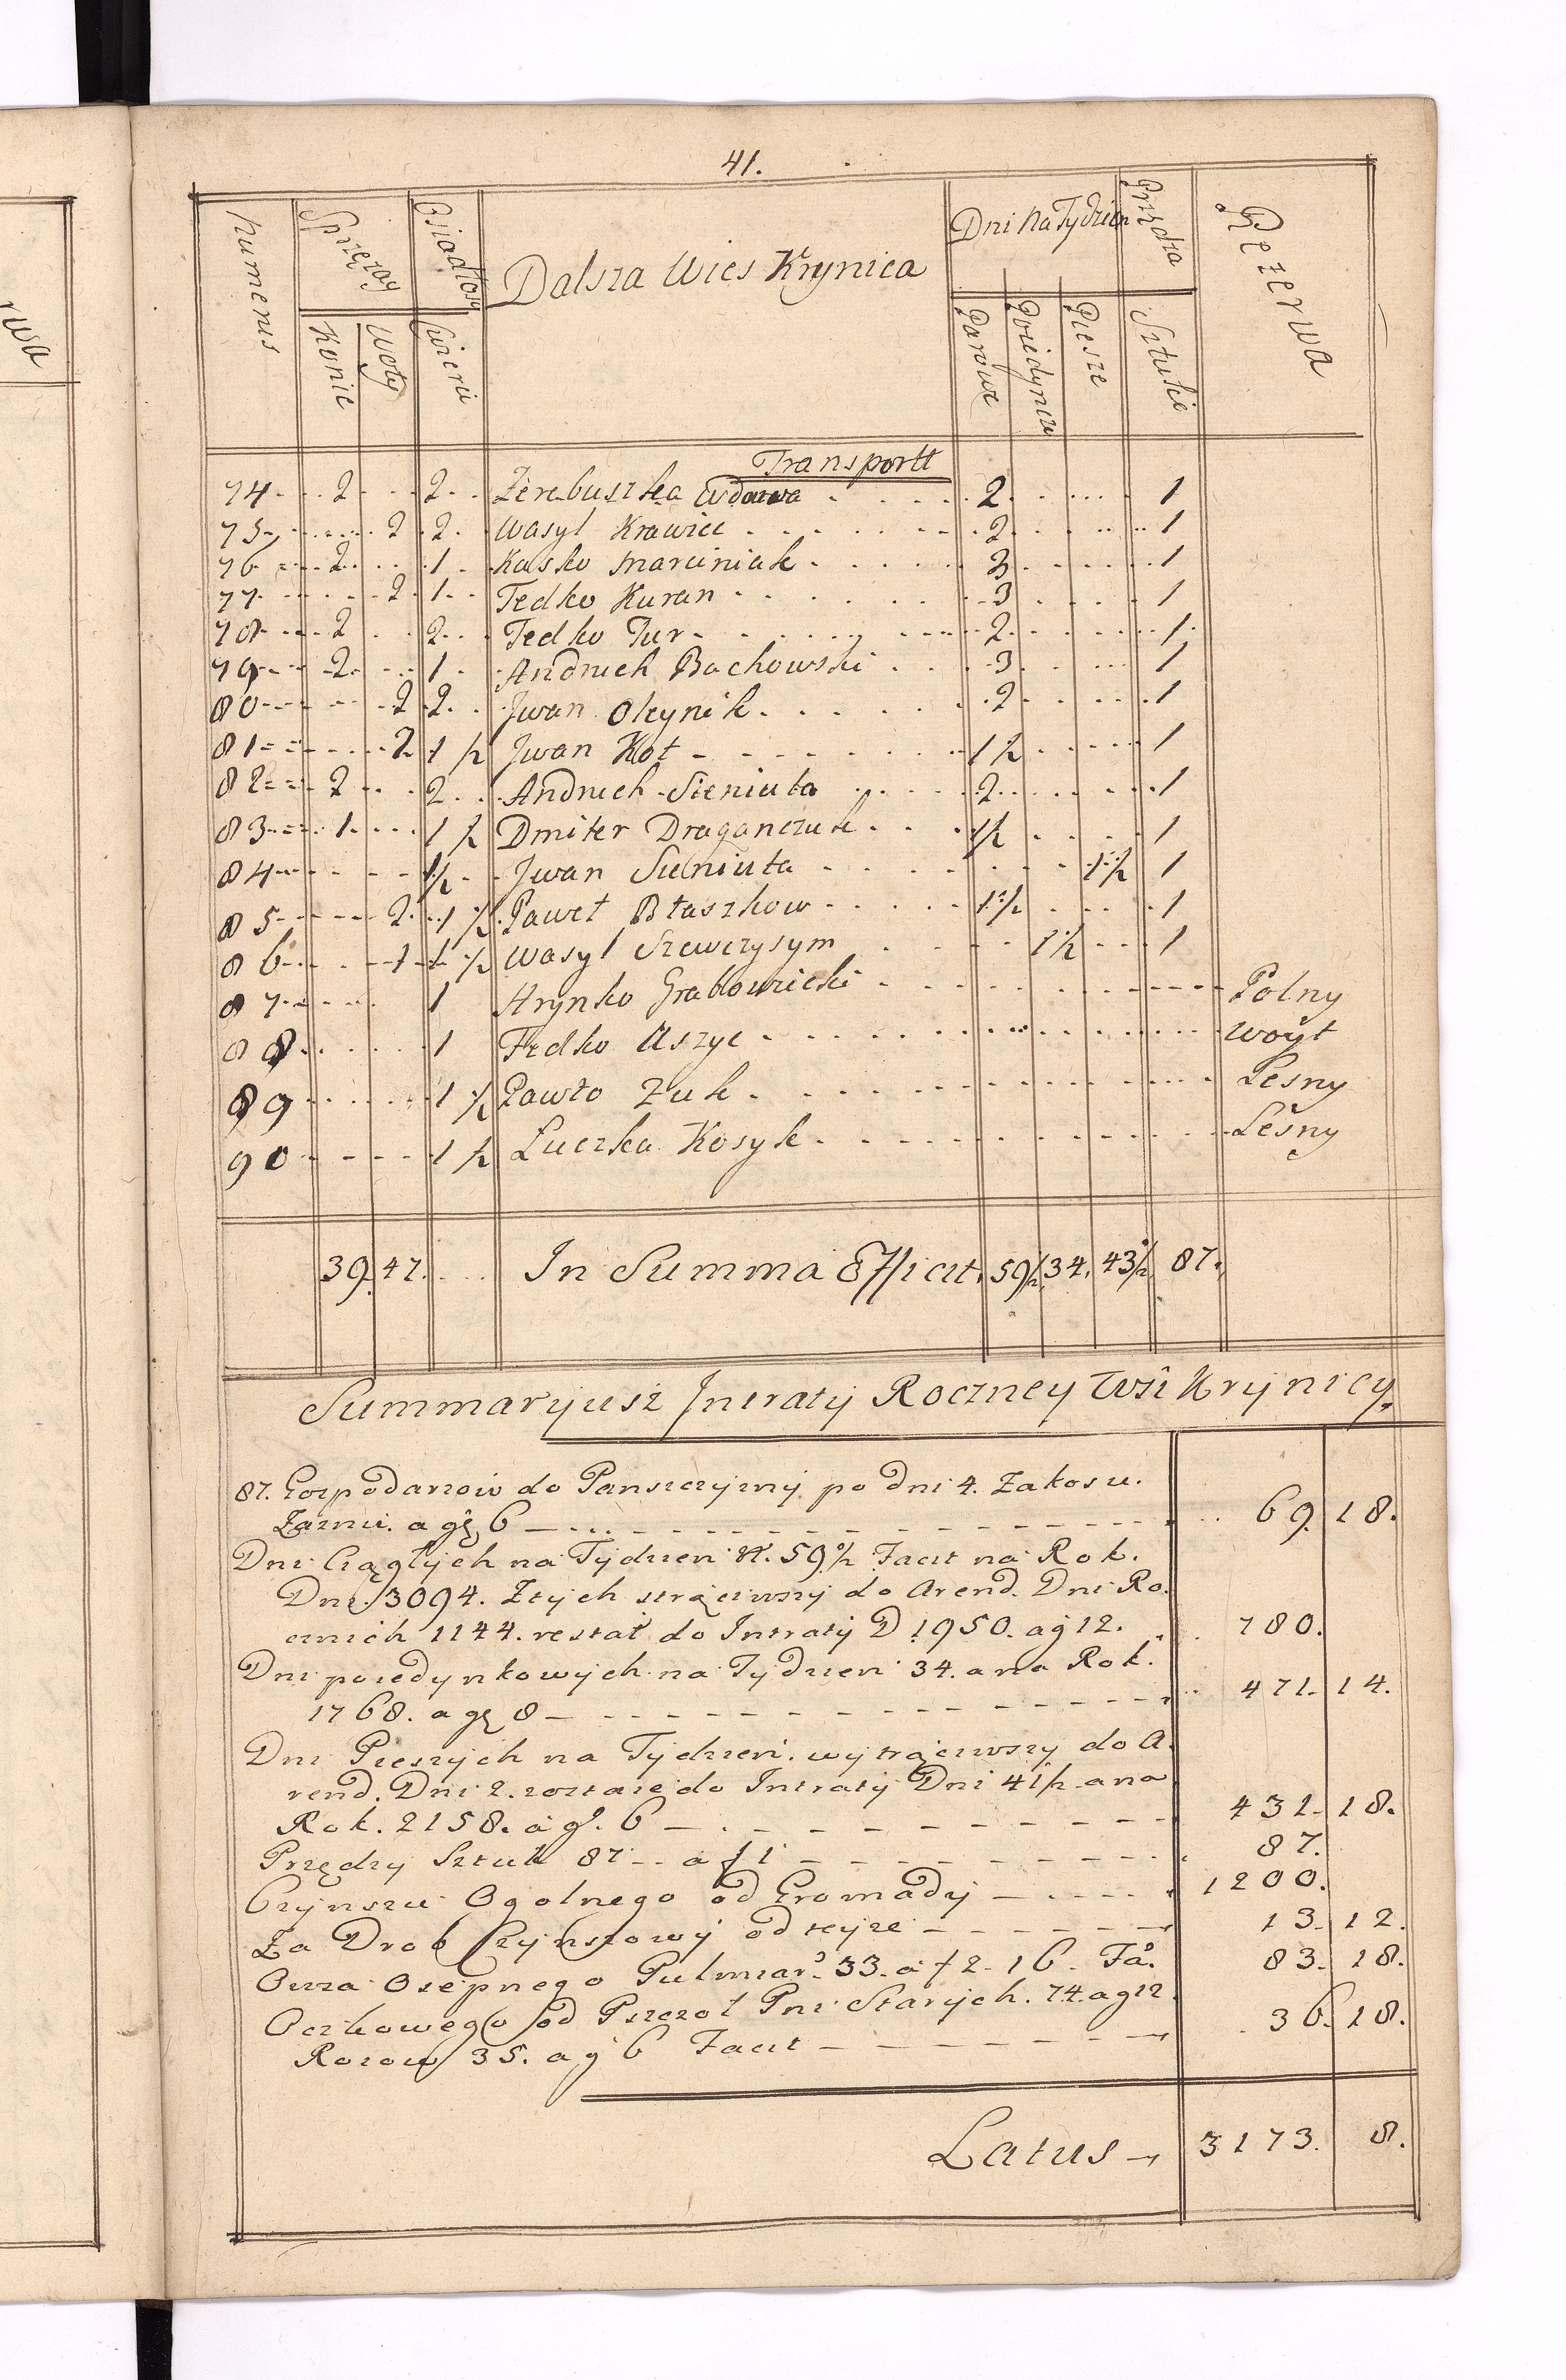 rwa
41.
Numerus | Sprzęzay | Osiadłosc | Dalsza Wies Krynica | Dni Na Tydzien | Przędza | Rezerwa
Konie | Woły | Cwierci | Parowe | Poiedyncze | Piesze | Sztuki
Transportt
74 - 2 - 2 Zerebuszka Wdowa 2 1
75 - 2 2 Wasyl Krawiec 2 1
76 - 2 - 1 Kasko Marciniak 3 1
77 - 2 1 Fedko Kuran 3 1
78 - 2 - 2 Fedko Tur 2 1
79 - 2 - 1 Andruch Bachowski 3 1
80 - 2 2 Jwan Oleynik 2 1
81 - 2 1 1/2 Jwan Kot 1 1/2 1
82 - 2 - 2 Andruch Sieniuta 2 1
83 - 1 - 1 1/2 Dmiter Draganczuk 1 1/2 1
84 - 1 1/2 Jwan Sieniuta 1 1/2 1
85 - 2 1 1/2 Paweł Błaszkow 1 1/2 1
86 - 1 1 1/2 Wasyl Szewczysym 1 1/2 1
87 - 1 Hrynko Grabowiecki Polny
88 - 1 Fedko Aszyc Woyt
89 - 1 1/2 Pawło Zuk Lesny
90 - 1 1/2 Luczka Kosyk Leśny
39. 47. In Summa Efficit. 59 1/2 34. 43 1/2 87.
Summaryusz Jntraty Roczney Wsi Krynicy.
87. Gospodarzow do Panszczyzny po dni 4. Zakosu.
Zarniu. a gł 6 69. 18.
Dni Ciągłych na Tydzien 59 1/2 Facit na Rok.
Dni 3094. Ztych strąciwszy do Arend. Dni Ro
cznich 1144. restat do Jntraty D 1950. a g 12. 780.
Dni poiedynkowych na Tydzien 34. a na Rok.
1768. a gł 8 471. 14.
Dni Pieszych na Tydzien. wytrąciwszy do A.
rend. Dni 2. zostaie do Jntraty Dni 41 1/2 a na
Rok. 2158. a g. 6 431. 18.
Przędzy Sztuk 87 - a f 1 87.
Czynszu Ogolnego od Gromady 1200.
Za Drob Czynszowy od teyze 13. 12.
Owsa Osepnego Pulmiar. 33. a f 2. 16. Fa. 83. 18.
Oczkowego od Pszczoł Pni Starych. 74. a g 12.
Roiow 35. a g 6 Facit 36. 18.
Latus 3173. 8.